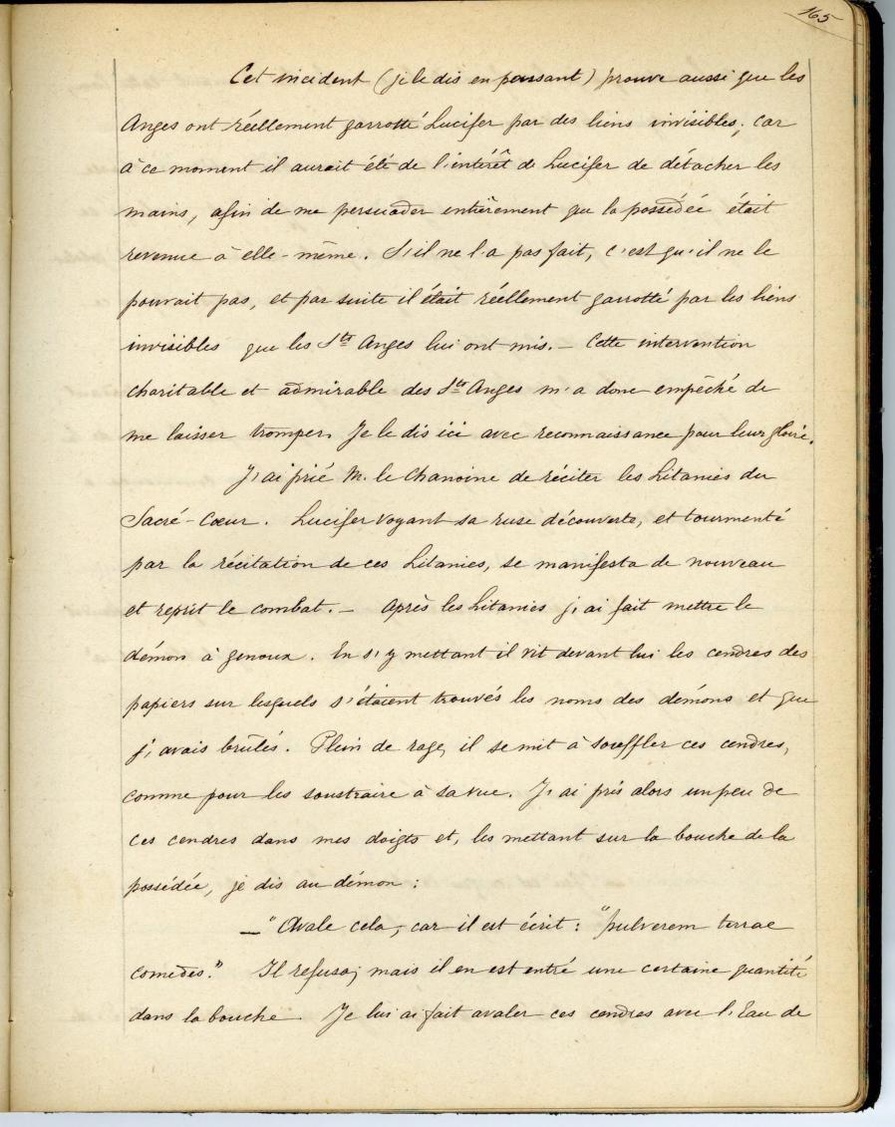 165
Cet incident (je le dis en passant) prouve aussi que les
Anges ont réellement garrotté Lucifer par des liens invisibles; car
à ce moment il aurait été de l'intérêt de Lucifer de détacher les
mains, afin de me persuader entièrement que la possédée était
revenue à elle-même. S'il ne l'a pas fait, c'est qu'il ne le
pouvait pas, et par suite il était réellement garrotté par les liens
invisibles que les Sts Anges lui ont mis. — Cette intervention
charitable et admirable des Sts Anges m'a donc empêché de
me laisser tromper. Je le dis ici avec reconnaissance pour leur gloire.
J'ai prié M. le Chanoine de réciter les Litanies du
Sacré-Cœur. Lucifer voyant sa ruse découverte, et tourmenté
par la récitation de ces Litanies, se manifesta de nouveau
et reprit le combat. — Après les Litanies j'ai fait mettre le
démon à genoux. En s'y mettant il vit devant lui les cendres des
papiers sur lesquels s'étaient trouvés les noms des démons et que
j'avais brûlés. Plein de rage, il se mit à souffler ces cendres,
comme pour les soustraire à sa vue. J'ai pris alors un peu de
ces cendres dans mes doigts et, les mettant sur la bouche de la
possédée, je dis au démon :
— "Avale cela, car il est écrit : "pulverem terrae
comedes." Il refusa; mais il en est entré une certaine quantité
dans la bouche. Je lui ai fait avaler ces cendres avec l'Eau de